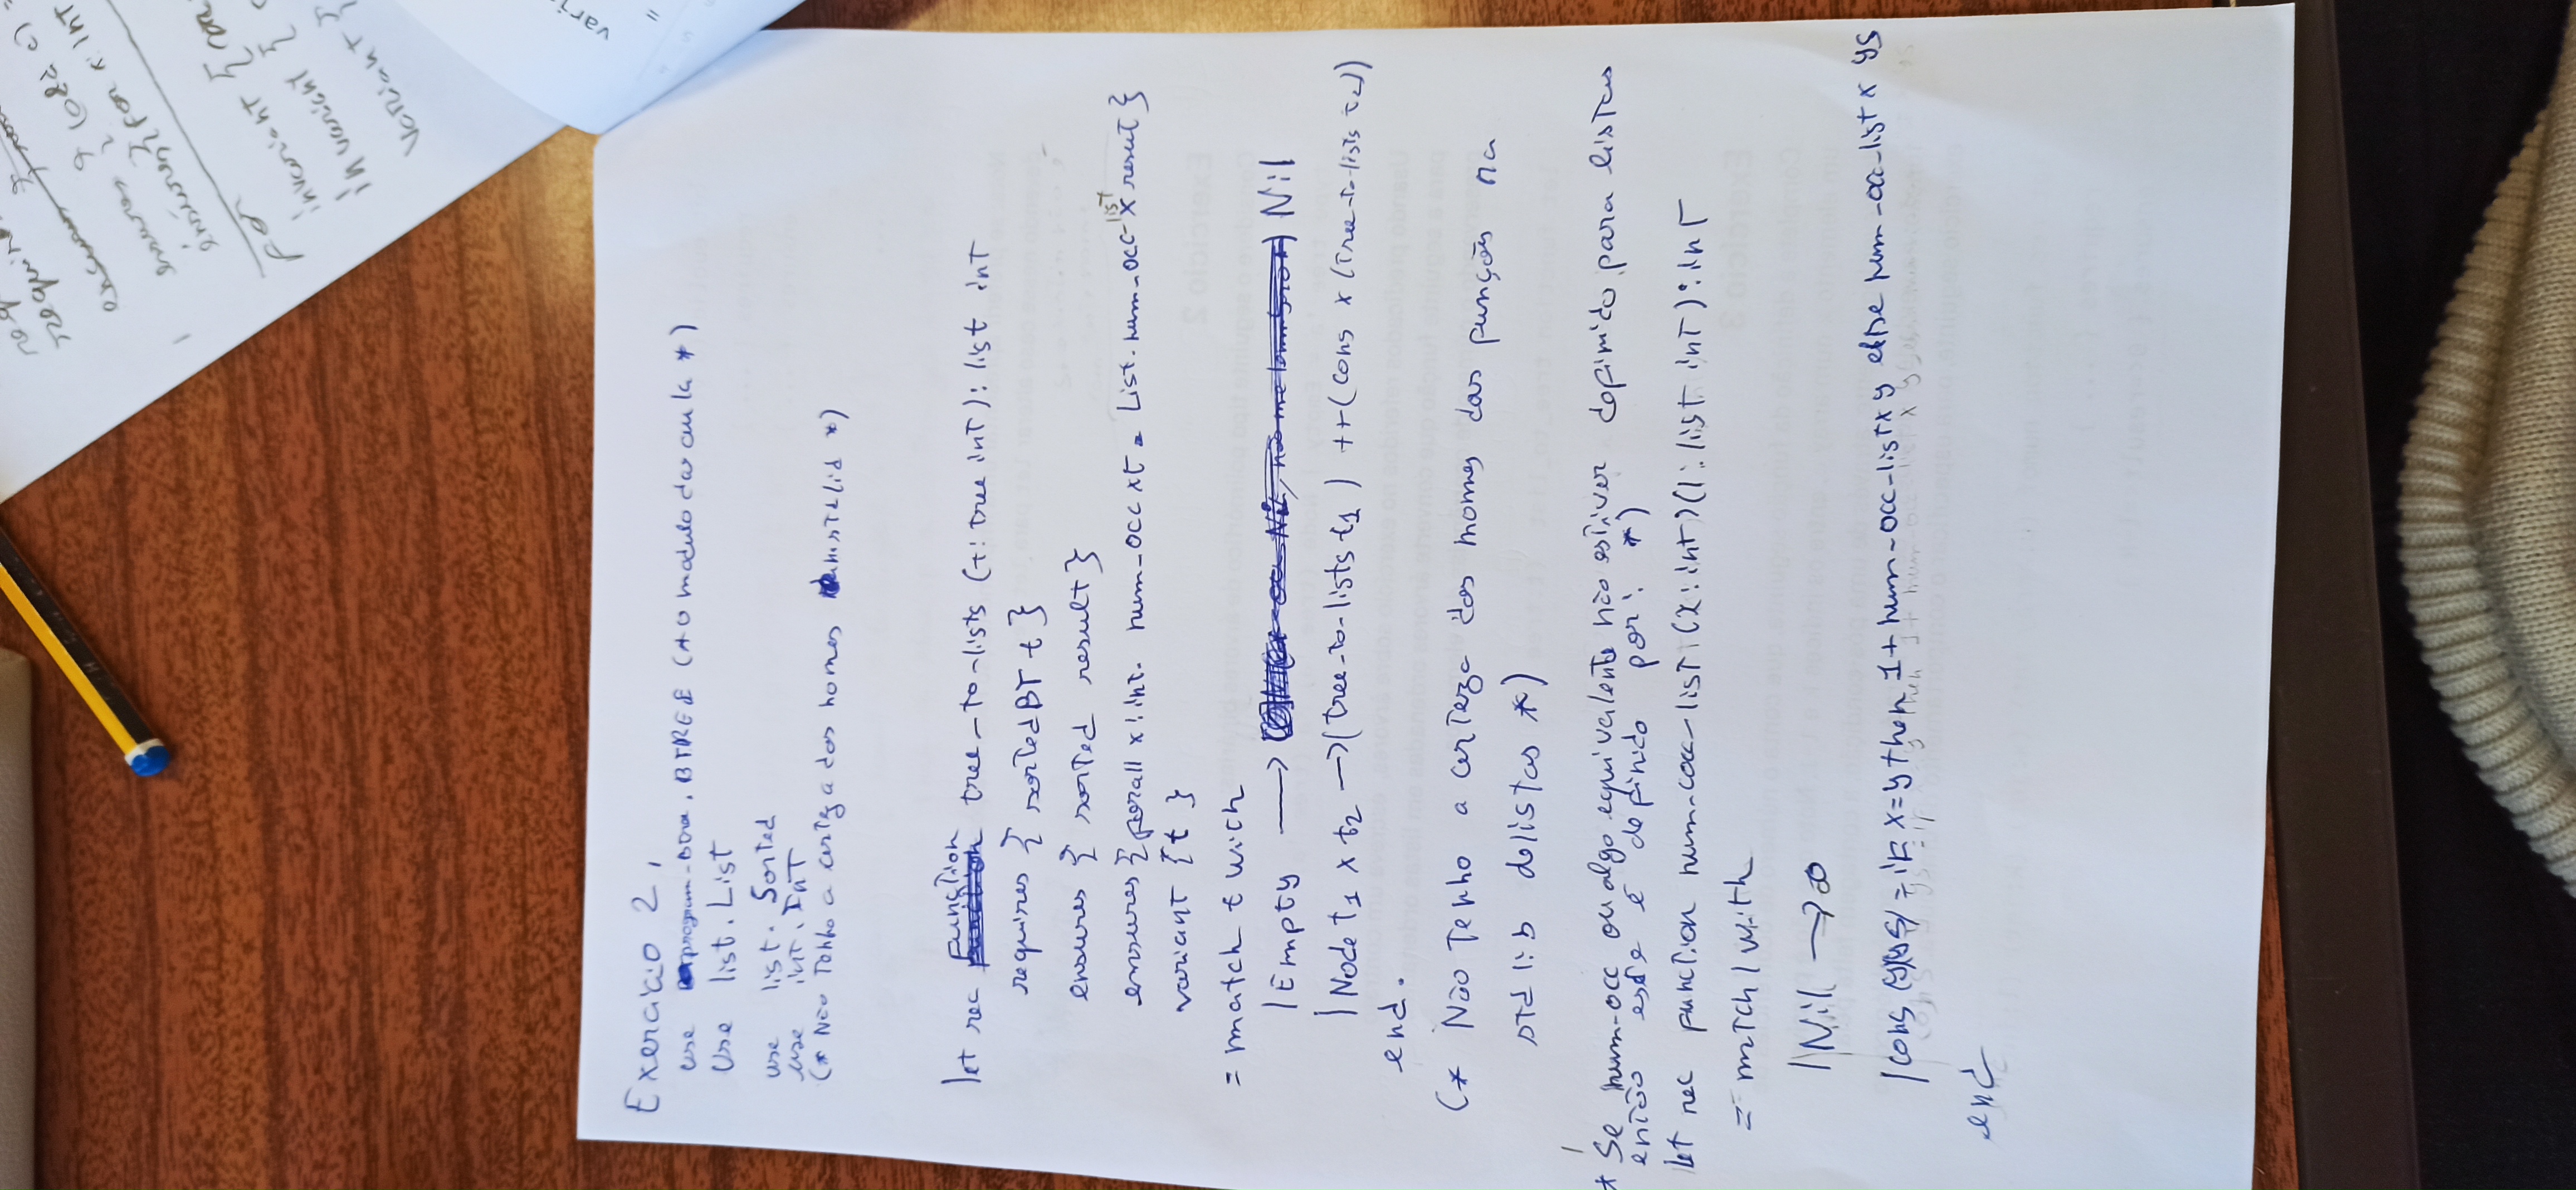 req
require
ensures {
ensures { (odd c) =
ensures { for x: int
For
invariant {
invariant {
variant {
vari
=
Exercicio 2,
use . BTREE (* O modulo da aula *)
Use list. List
use list. Sorted
use int. Int
(* Não Tenho a certeza dos nomes *)
let rec function tree-to-lists (t: tree int): list int
requires { sortedBT t }
ensures { sorted result }
ensures {forall x: int. num-occ x t = List. num-occ-list x result }
variant {t }
= match t with
| Empty → Nil
| Node t1 x t2 → (tree-to-lists t1 ) ++ (cons x (tree-to-lists t2))
end.
(* Não Tenho a certeza dos nomes das funções na
std lib de listas *)
* Se num-occ ou algo equivalente não estiver definido para listas
então este é definido por: *)
let rec function num-occ-list (x: int) (l: list int): int
= match l with
| Nil → 0
| cons (y)(ys) = if x=y then 1 + num-occ-list x y else num-occ-list x ys
end